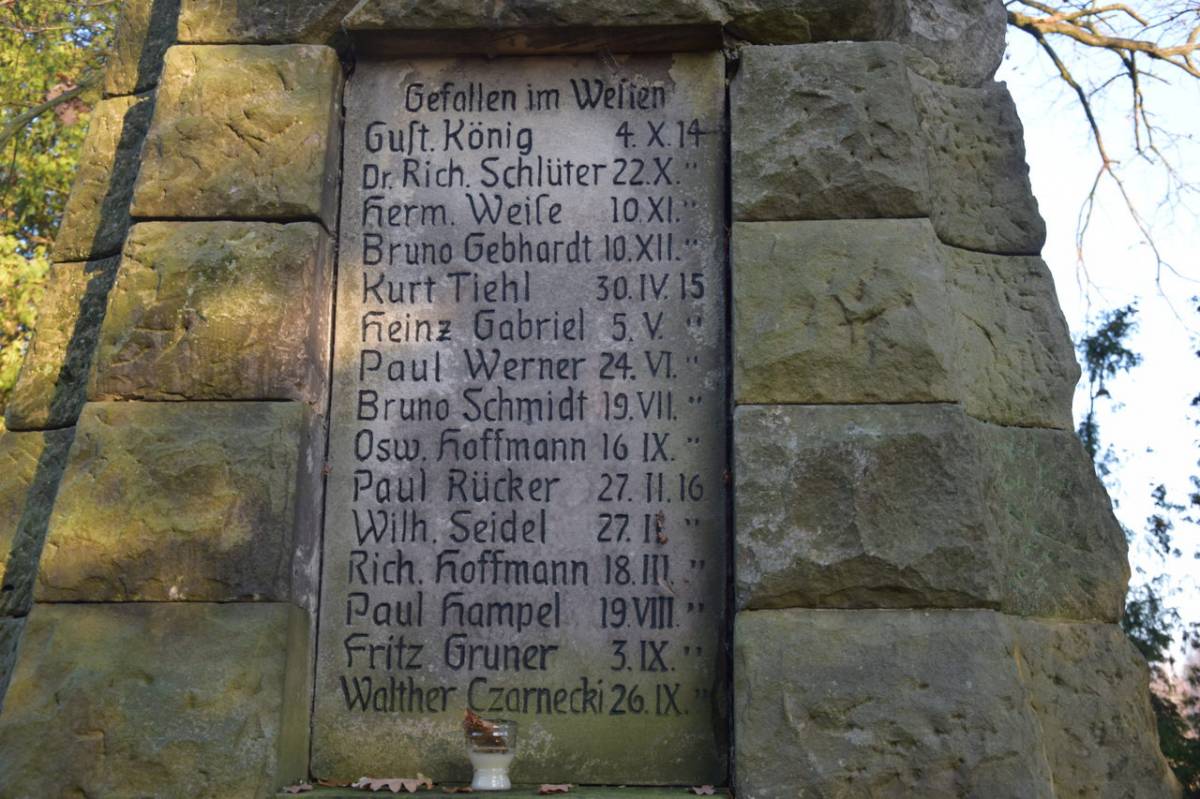 Gefallen im Weſten
Guſt. König 4. X. 14
Dr. Rich. Schlüter 22. X. "
Herm. Weiſe 10. XI. "
Bruno Gebhardt 10. XII. "
Kurt Tiehl 30. IV. 15
Heinz Gabriel 5. V. "
Paul Werner 24. VI. "
Bruno Schmidt 19. VII. "
Osw. Hoffmann 16 IX. "
Paul Rücker 27. II. 16
Wilh. Seidel 27. II. "
Rich. Hoffmann 18. III. "
Paul Hampel 19. VIII. "
Fritz Gruner 3. IX. "
Walther Czarnecki 26. IX. "